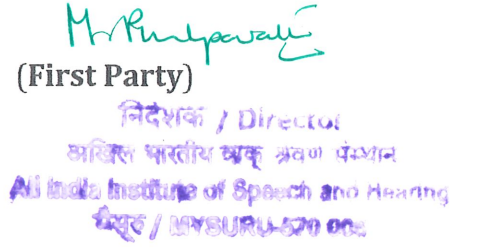 (First Party)
निदेशक / Director
अखिल भारतीय वाक् श्रवण संस्थान
All India Institute of Speech and Hearing
मैसूरु / MYSURU-570 006